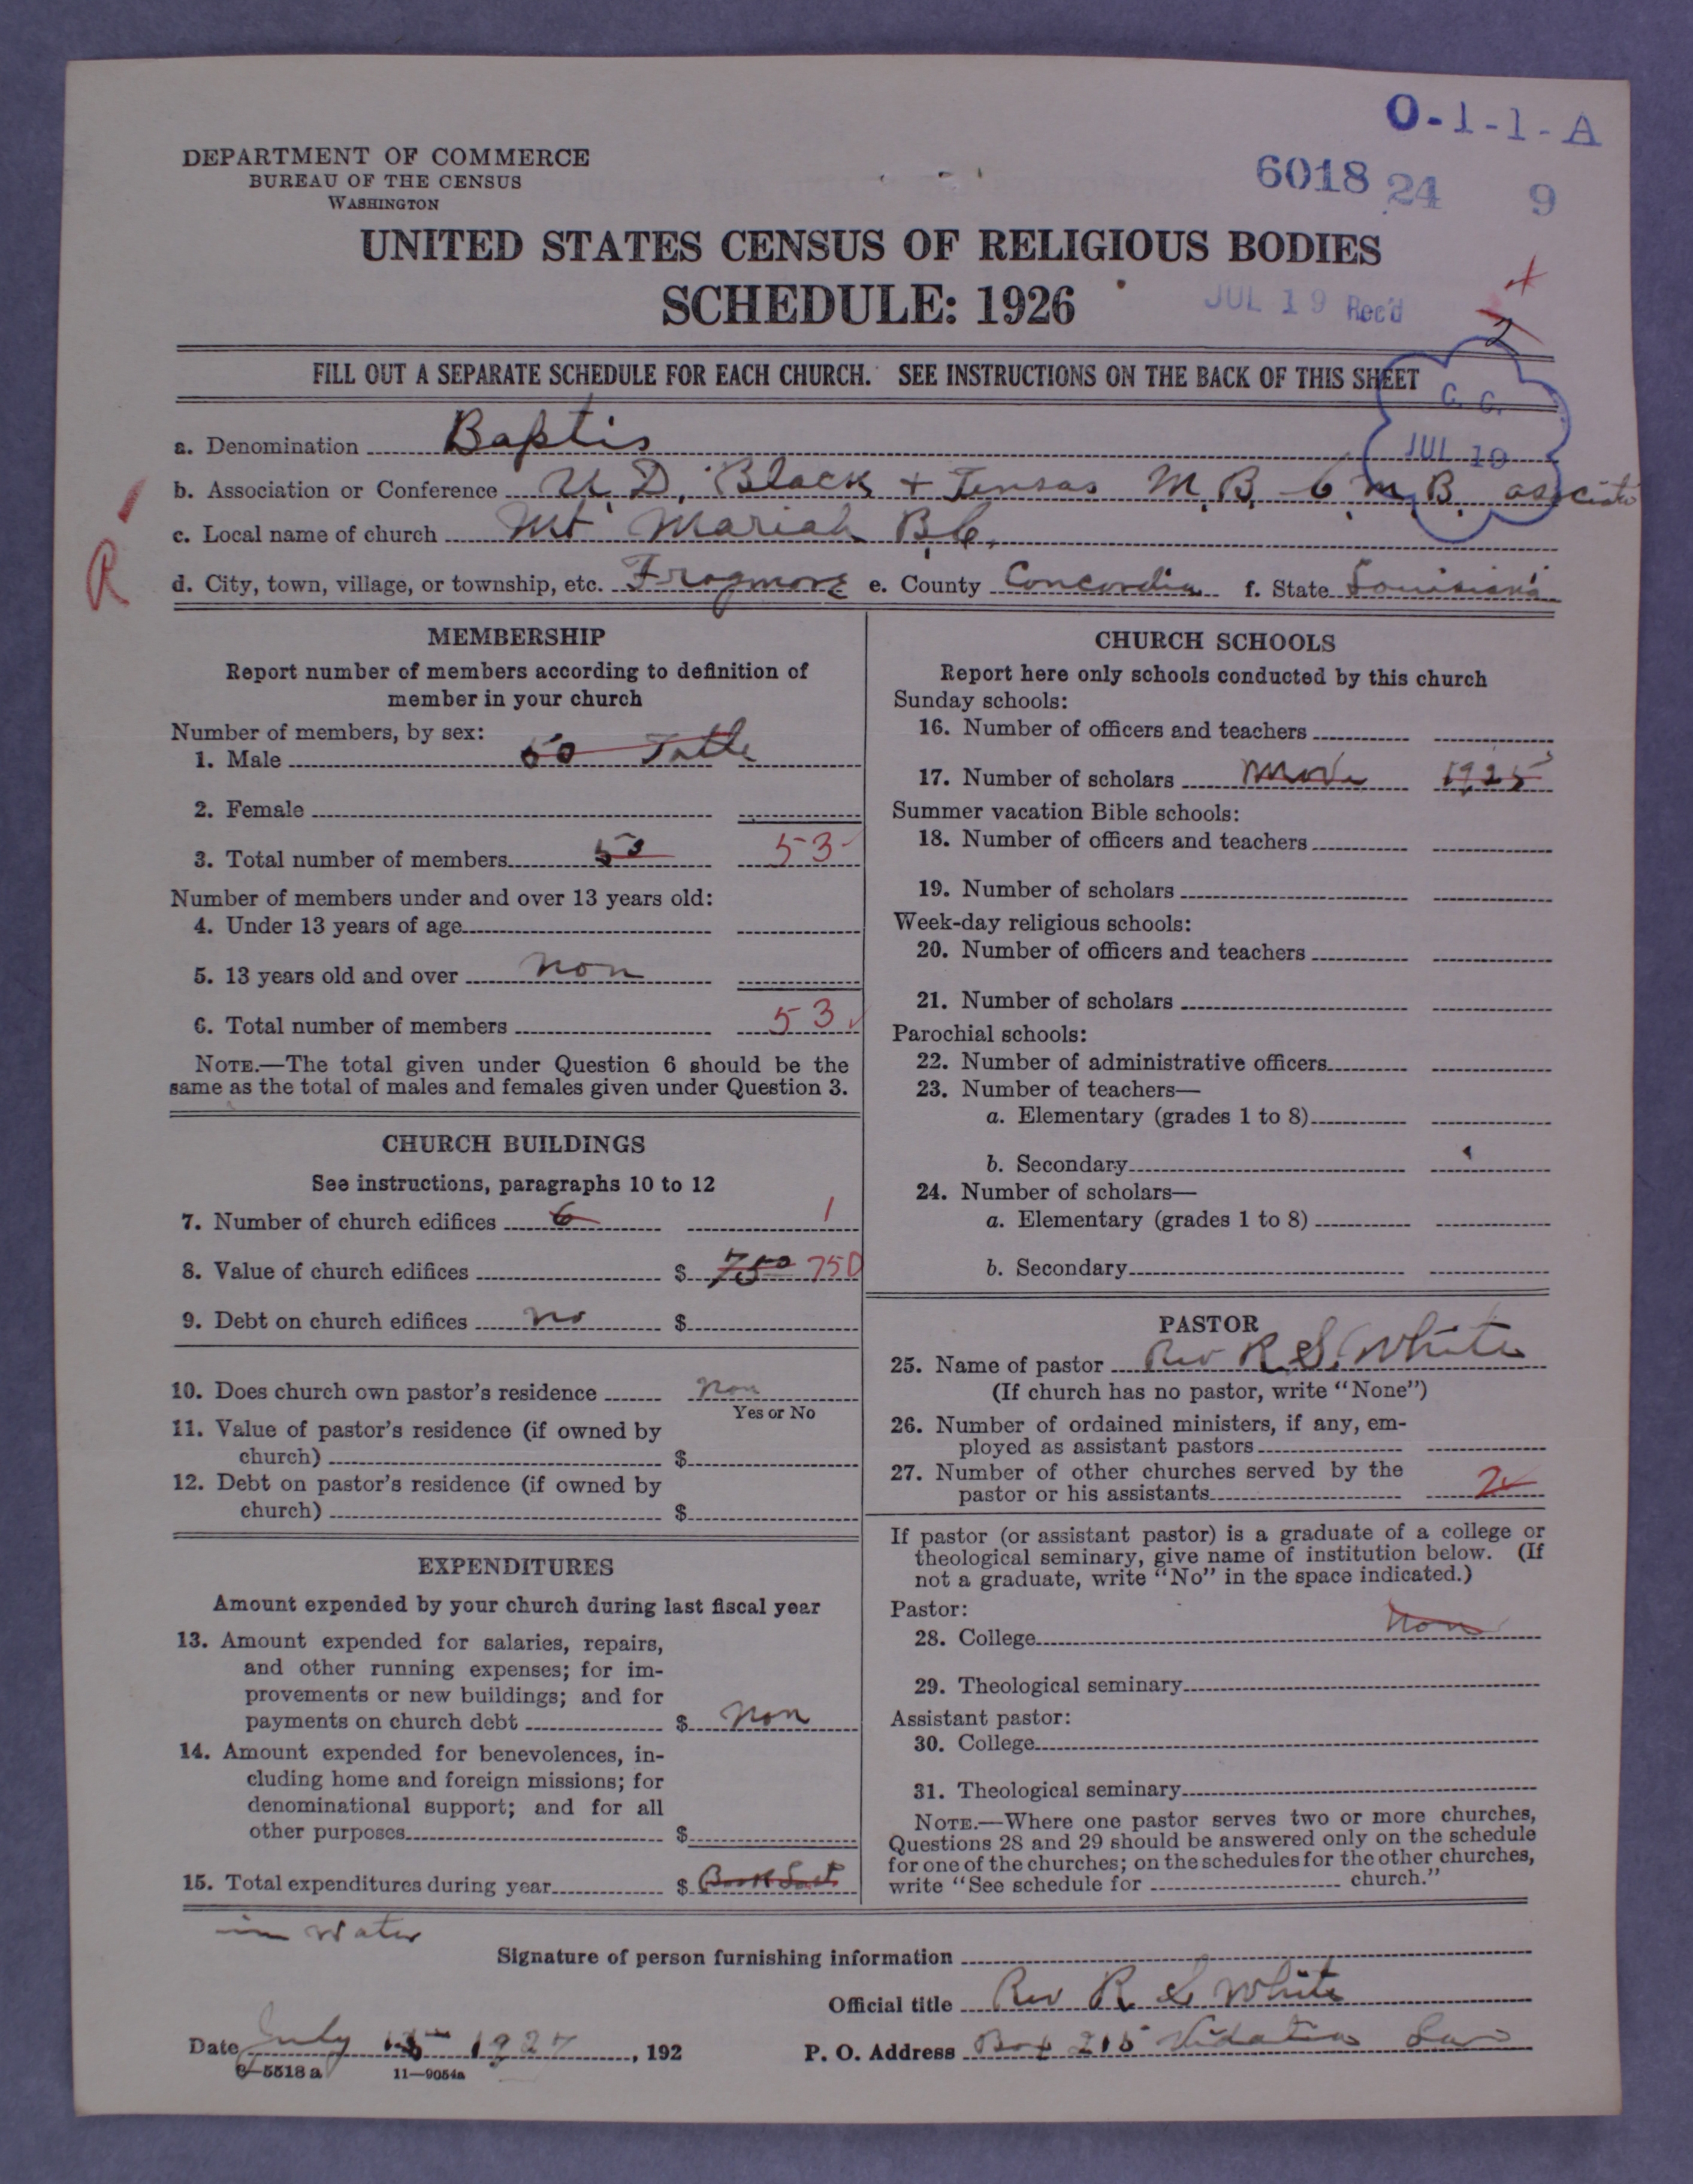 O-1-1-A
DEPARTMENT OF COMMERCE
BUREAU OF THE CENSUS
WASHINGTON
6018 24 9
UNITED STATES CENSUS OF RELIGIOUS BODIES
SCHEDULE: 1926
JUL 19 Rec'd
2
FILL OUT A SEPARATE SCHEDULE FOR EACH CHURCH. SEE INSTRUCTIONS ON THE BACK OF THIS SHEET
C. C.
JUL 19
a. Denomination Baptis
b. Association or Conference U. D. Black + Tensas M. B. C. M. B.
c. Local name of church Mt Mariah B.C.
d. City, town, village, or township, etc. Frogmore e. County Concordia f. State Louisiana
R
MEMBERSHIP
Report number of members according to definition of
member in your church
Number of members, by sex:
1. Male 50
2. Female
3. Total number of members 53 53
Number of members under and over 13 years old:
4. Under 13 years of age
5. 13 years old and over non
6. Total number of members 53
NOTE.—The total given under Question 6 should be the
same as the total of males and females given under Question 3.
CHURCH BUILDINGS
See instructions, paragraphs 10 to 12
7. Number of church edifices 6 1
8. Value of church edifices $ 750 750
9. Debt on church edifices no $
10. Does church own pastor's residence non
Yes or No
11. Value of pastor's residence (if owned by
church) $
12. Debt on pastor's residence (if owned by
church) $
EXPENDITURES
Amount expended by your church during last fiscal year
13. Amount expended for salaries, repairs,
and other running expenses; for im-
provements or new buildings; and for
payments on church debt $ non
14. Amount expended for benevolences, in-
cluding home and foreign missions; for
denominational support; and for all
other purposes $
15. Total expenditures during year $
in water
CHURCH SCHOOLS
Report here only schools conducted by this church
Sunday schools:
16. Number of officers and teachers
17. Number of scholars 1925
Summer vacation Bible schools:
18. Number of officers and teachers
19. Number of scholars
Week-day religious schools:
20. Number of officers and teachers
21. Number of scholars
Parochial schools:
22. Number of administrative officers
23. Number of teachers—
a. Elementary (grades 1 to 8)
b. Secondary
24. Number of scholars—
a. Elementary (grades 1 to 8)
b. Secondary
PASTOR
25. Name of pastor Rev R. S. White
(If church has no pastor, write "None")
26. Number of ordained ministers, if any, em-
ployed as assistant pastors
27. Number of other churches served by the
pastor or his assistants 2
If pastor (or assistant pastor) is a graduate of a college or
theological seminary, give name of institution below. (If
not a graduate, write "No" in the space indicated.)
Pastor:
28. College non
29. Theological seminary
Assistant pastor:
30. College
31. Theological seminary
NOTE.—Where one pastor serves two or more churches,
Questions 28 and 29 should be answered only on the schedule
for one of the churches; on the schedules for the other churches,
write "See schedule for church."
Signature of person furnishing information
Official title Rev R S White
Date July 15 1927, 192
P. O. Address Box 215 Vidalia
8—5518 a 11—9054a